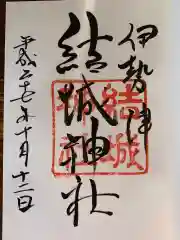 伊勢津
結城神社
平成二七年十月十二日
結城
神社